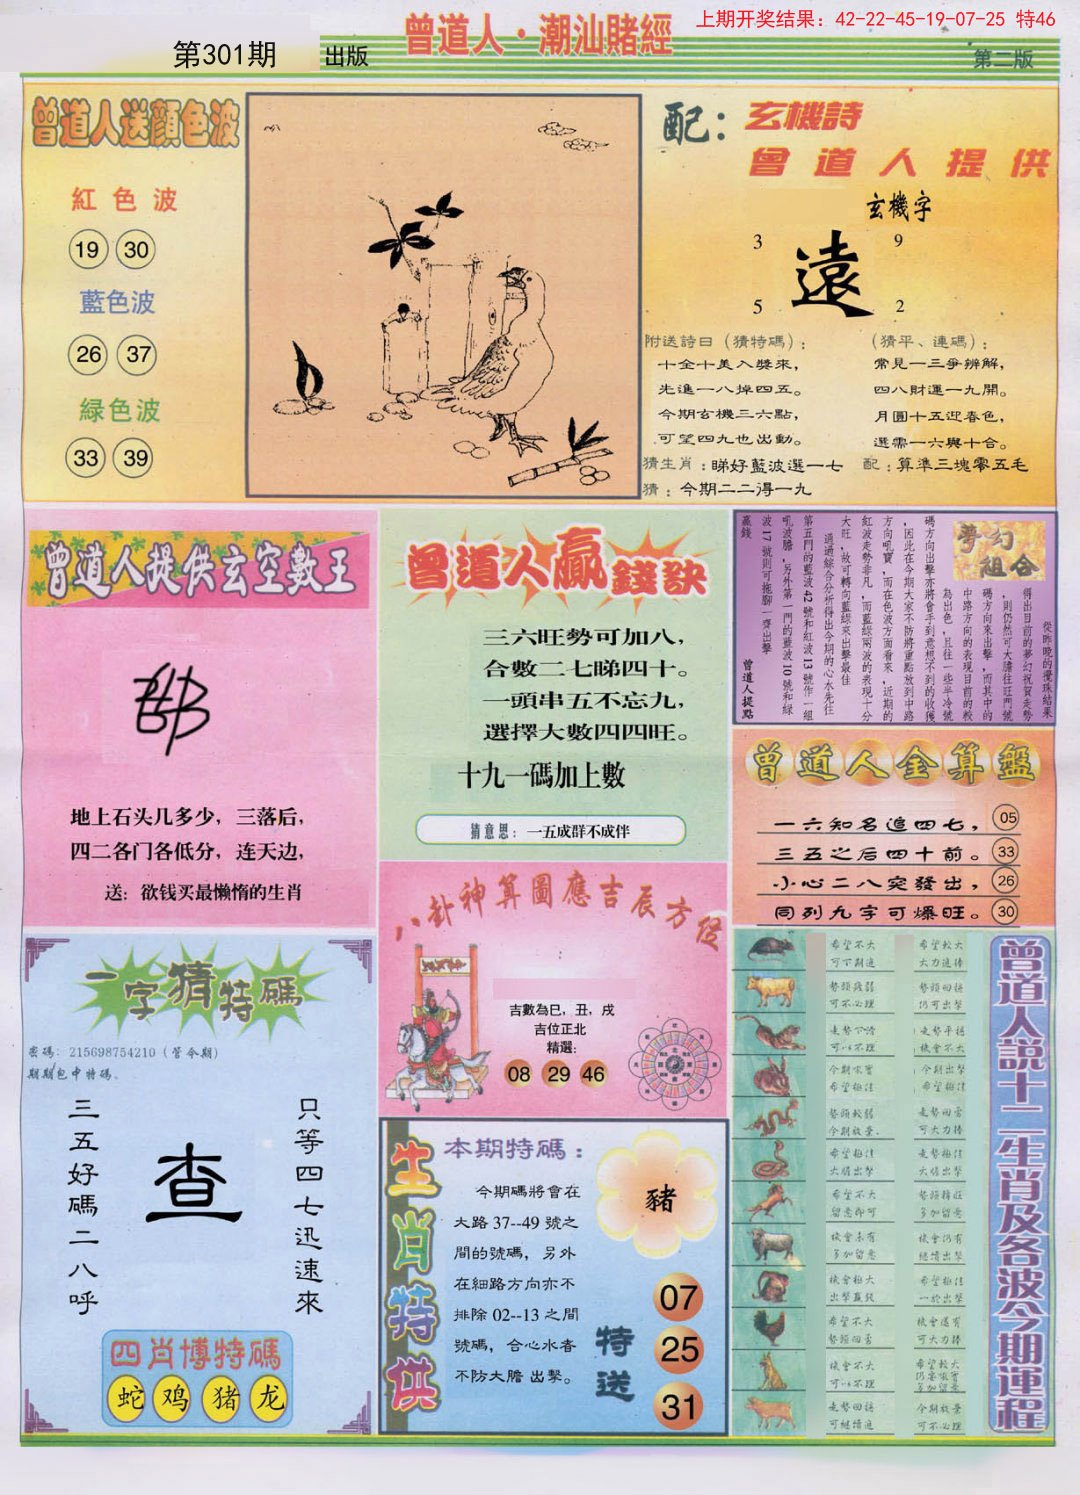 上期开奖结果：42-22-45-19-07-25 特46
曾道人·潮汕賭經
第301期
出版
第二版
曾道人送顔色波
紅色波
19 30
藍色波
26 37
緑色波
33 39
配：玄機詩
曾道人提供
玄機字
3 9
遠
5 2
附送詩曰（猜特碼）：
十全十美入獎來，
先進一八掉四五。
今期玄機三六點，
可望四九也出動。
猜生肖：睇好藍波選一七
猜：今期二二得一九
（猜平、連碼）：
常見一三爭辨解，
四八財運一九開。
月圓十五迎春色，
選需一六與十合。
配：算準三塊零五毛
曾道人提供玄空數王
地上石头几多少，三落后，
四二各门各低分，连天边，
送：欲钱买最懒惰的生肖
曾道人贏錢訣
三六旺勢可加八，
合數二七睇四十。
一頭串五不忘九，
選擇大數四四旺。
十九一碼加上數
猜意思：一五成群不成伴
夢幻組合
從昨晚的攪珠結果
得出目前的夢幻祝賀走勢
，則仍然可大膽往旺門號
碼方向來出擊，而其中的
中路方向的表現目前的較
為出色，且往一些半冷號
碼方向出擊亦將會手到意想不到的收獲
，因此在今期大家不防將重點放到中路
方向吼寶，而在色波方面看來，近期的
紅波走勢非凡，而藍綠兩波的表現十分
大旺，故可轉向藍綠來出擊最佳
通過綜合分析得出今期的心水先往
第五門的藍波42號和紅波13號作一組
吼波膽，另外第一門的藍波10號和綠
波17號則可拖腳一齊出擊
贏錢
曾道人提點
曾道人全算盤
一六知名追四七，05
三五之后四十前。33
小心二八突發出，26
同列九字可爆旺。30
八卦神算圖應吉辰方位
吉數為巳，丑，戌
吉位正北
精選：
08 29 46
一字猜特碼
密碼：215698754210（管今期）
期期包中特碼、
三五好碼二八呼
查
只等四七迅速來
四肖博特碼
蛇 鸡 猪 龙
生肖特供
本期特碼：
今期碼將會在
大路37--49號之
間的號碼，另外
在細路方向亦不
排除02--13之間
號碼，合心水者
不防大膽出擊。
豬
特送
07
25
31
曾道人說十二生肖及各波今期運程
希望不大
希望較大
大力追捧
可不必理
仍可出擊
機會不大
今期出擊
可大力捧
大膽出擊
希望不大
留意即可
多加留意
機會極大
出擊贏錢
希望極佳
希望不大
可大力捧
機會不大
可繼續追
可不必理